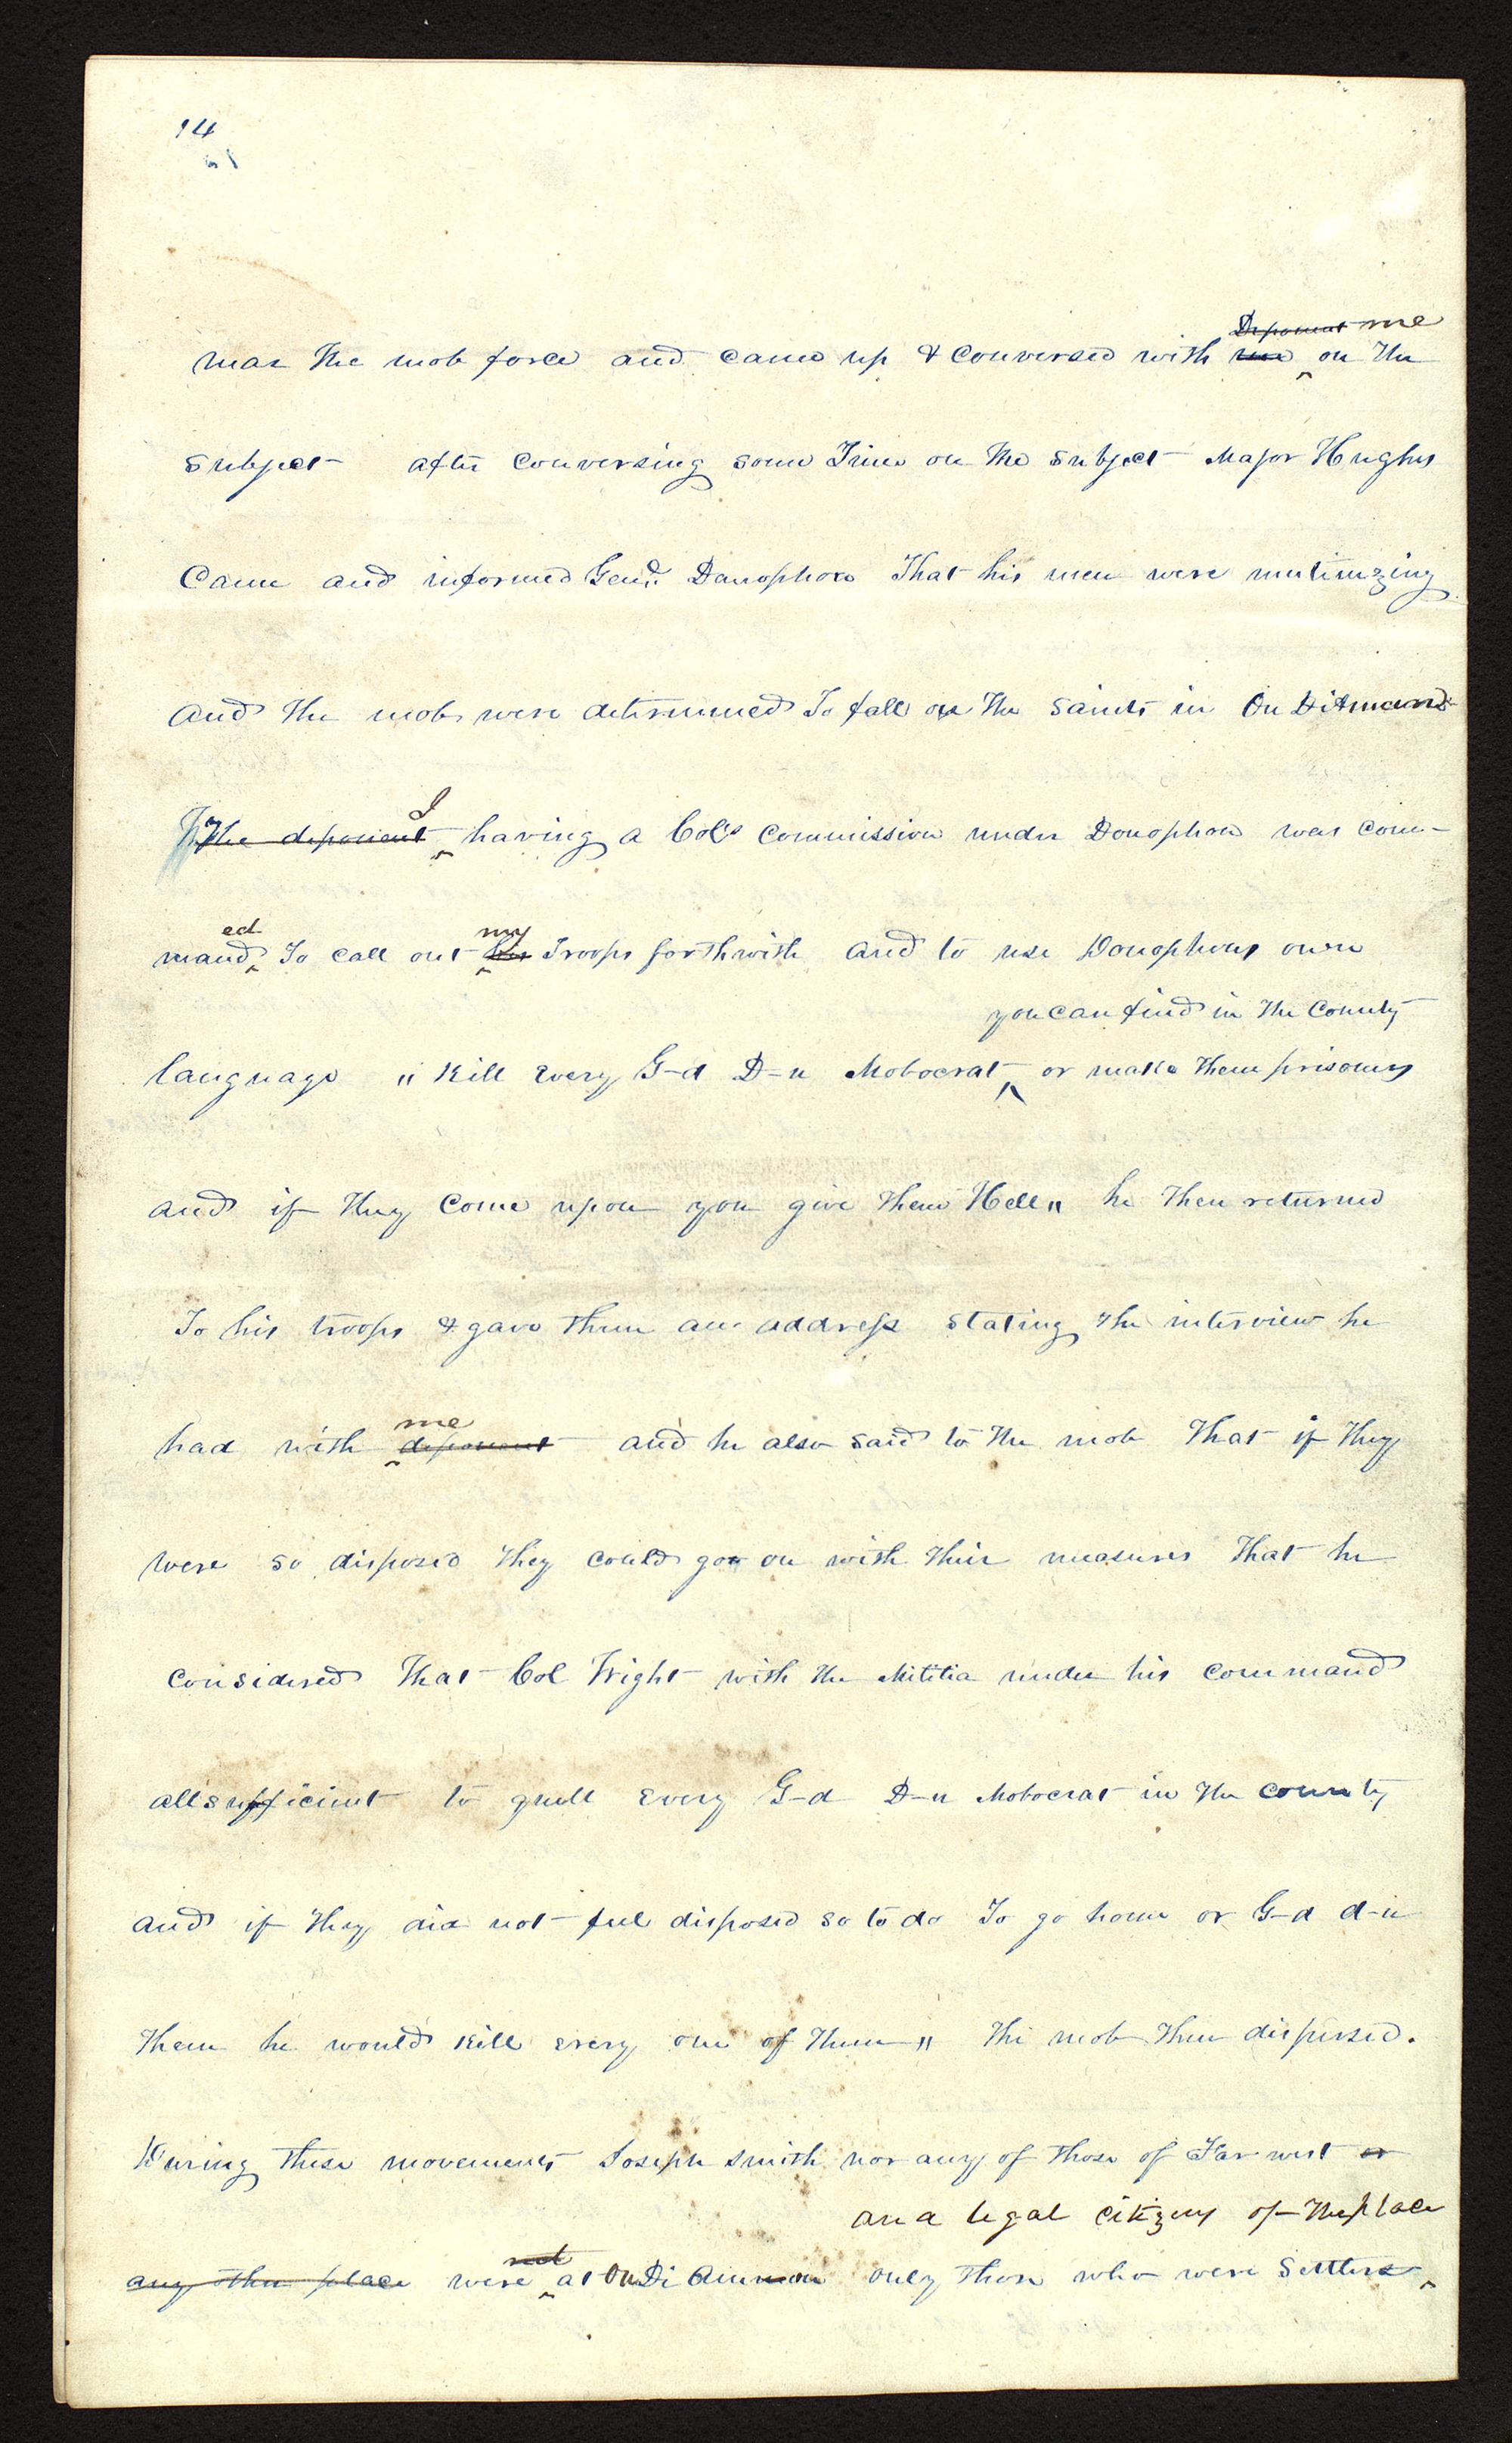 14
Deponent me
near the mob force and came up & conversed with me ‸ on the
subject after conversing some Time on the subject Major Hughs
Came and informed Genl. Donophon That his men were mutinizing
and the mob were determined To fall on the saints in On Ditmand
I
The deponent ‸ having a Col's Commission under Donophon was com-
ed my
mand ‸ To call out ‸ his Troops forthwith and to use Donophons own
you can find in the County
language " Kill Every G-d D-n Mobocrat ‸ or make them prisoners
and if they Come upon you give them Hell" he then returned
To his troops & gave them an address stating the interview he
me
had with ‸ deponent and he also said to the mob That if they
were so disposed they could go on with their measures That he
considered That Col Wight with the Militia under his command
all sufficient to quell Every G-d D-n Mobocrat in the county
and if they did not feel disposed so to do To go home or G-d d-n
them he would kill every one of them " the mob then dispersed.
During these movements Joseph Smith nor any of those of Far west or
and legal citizens of the place
not
any other place were ‸ at On Di Ammon only those who were Settlers ‸